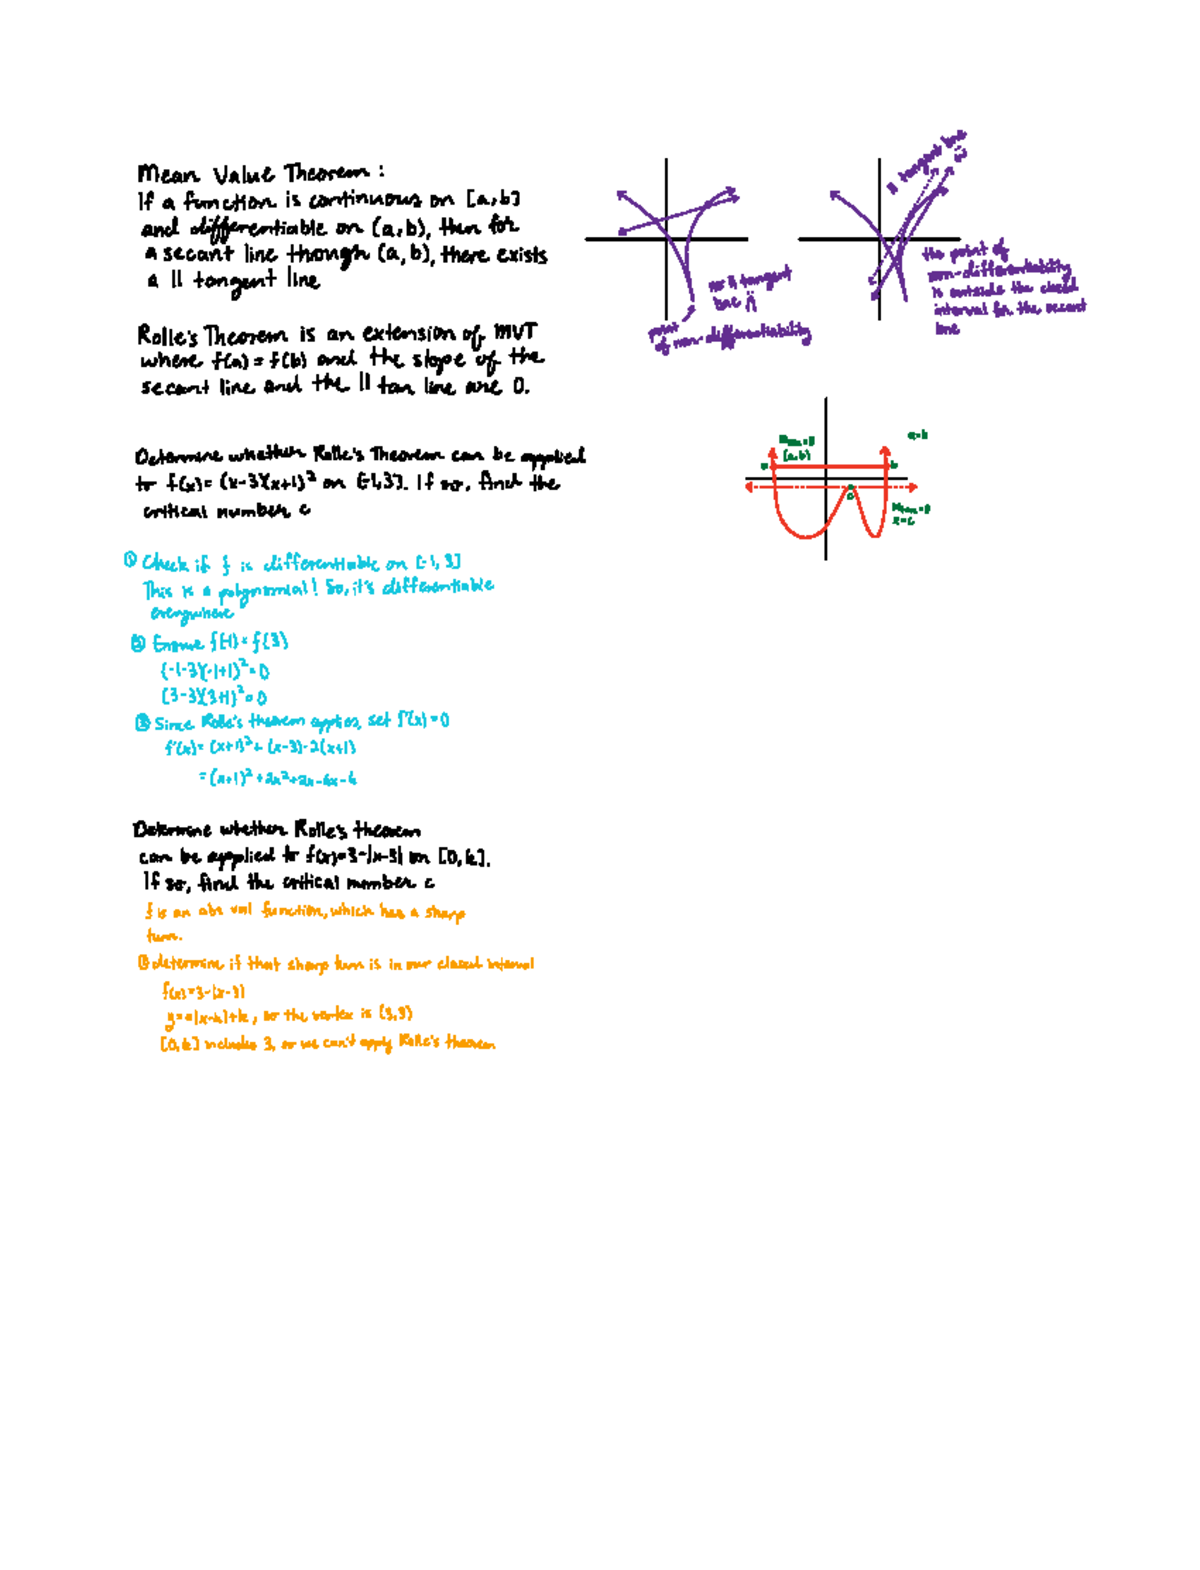 Mean Value Theorem:
If a function is continuous on [a,b]
and differentiable on (a,b), then for
a secant line though (a,b), there exists
a || tangent line
Rolle's Theorem is an extension of MVT
where f(a) = f(b) and the slope of the
secant line and the || tan line are 0.
no || tangent
line
point
of non-differentiability
|| tangent line
the point of
non-differentiability
is outside the closed
interval for the secant
line
Determine whether Rolle's Theorem can be applied
to f(x)= (x-3)(x+1)² on [-1,3]. If so, find the
critical number c
(a,b)
a
b
c
x=c
① Check if f is differentiable on [-1, 3]
This is a polynomial! So, it's differentiable
everywhere
② Ensure f(-1) = f(3)
(-1-3)(-1+1)²=0
(3-3)(3+1)²=0
③ Since Rolle's theorem applies, set f'(x) = 0
f'(x)= (x+1)²+ (x-3)·2(x+1)
= (x+1)²+2x²+2x-6x-6
Determine whether Rolle's theorem
can be applied to f(x)=3-|x-3| on [0,6].
If so, find the critical number c
f is an abs val function, which has a sharp
turn.
① determine if that sharp turn is in our closed interval
f(x)=3-|x-3|
y=a|x-h|+k, so the vertex is (3,3)
[0,6] includes 3, so we can't apply Rolle's theorem